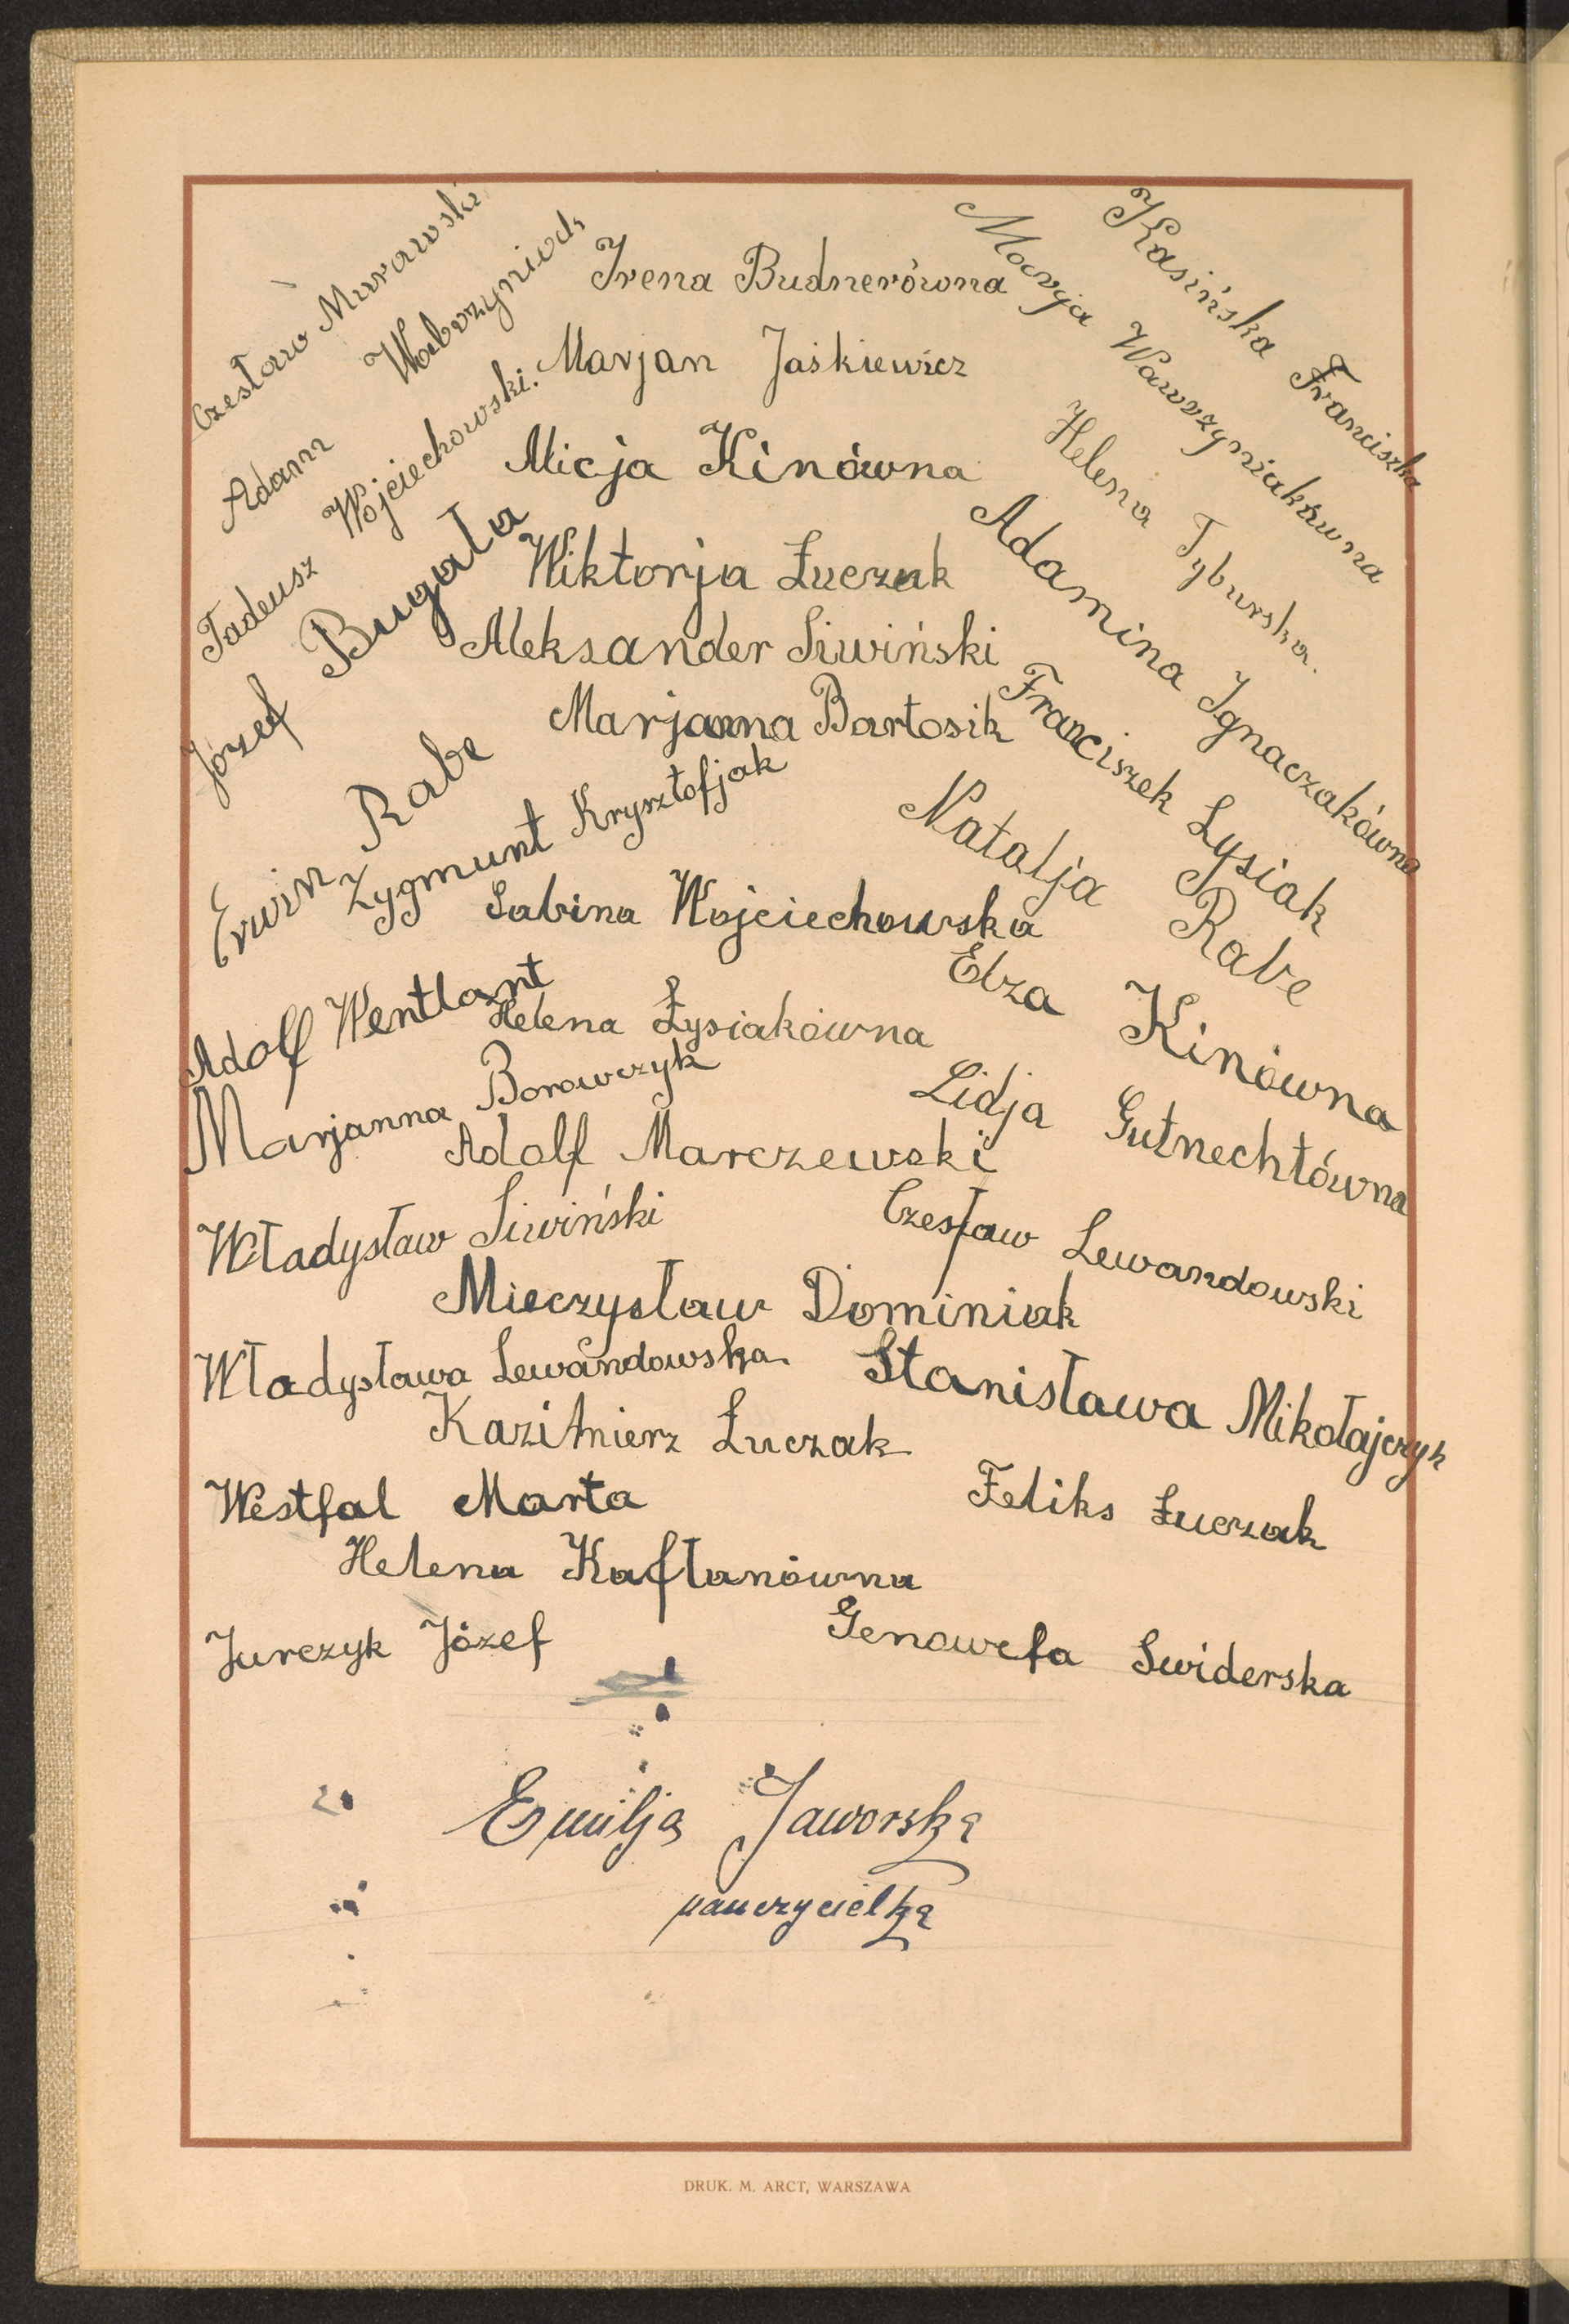 Czesław Murawski
Adam Wawrzyniak
Tadeusz Wojciechowski.
Józef Bugała
Erwin Rabe
Zygmunt Krysztofjak
Irena Budnerówna
Marjan Jaśkiewicz
Alicja Kinówna
Wiktorja Łuczak
Aleksander Siwiński
Marjanna Bartosik
Kasińska Franciszka
Marja Wawrzyniakówna
Helena Tyburska.
Adamina Ignaczakówna
Franciszek Łysiak
Natalja Rabe
Sabina Wojciechowska
Elza Kinówna
Adolf Wentlant
Helena Łysiakówna
Marjanna Borowczyk
Lidja Gutnechtówna
Adolf Marczewski
Władysław Siwiński
Czesław Lewandowski
Mieczysław Dominiak
Władysława Lewandowska
Stanisława Mikołajczyk
Kazimierz Łuczak
Westfal Marta
Feliks Łuczak
Helena Kaftanówna
Jurczyk Józef
Genowefa Swiderska
Emilja Jaworska
nauczycielka
DRUK. M. ARCT, WARSZAWA